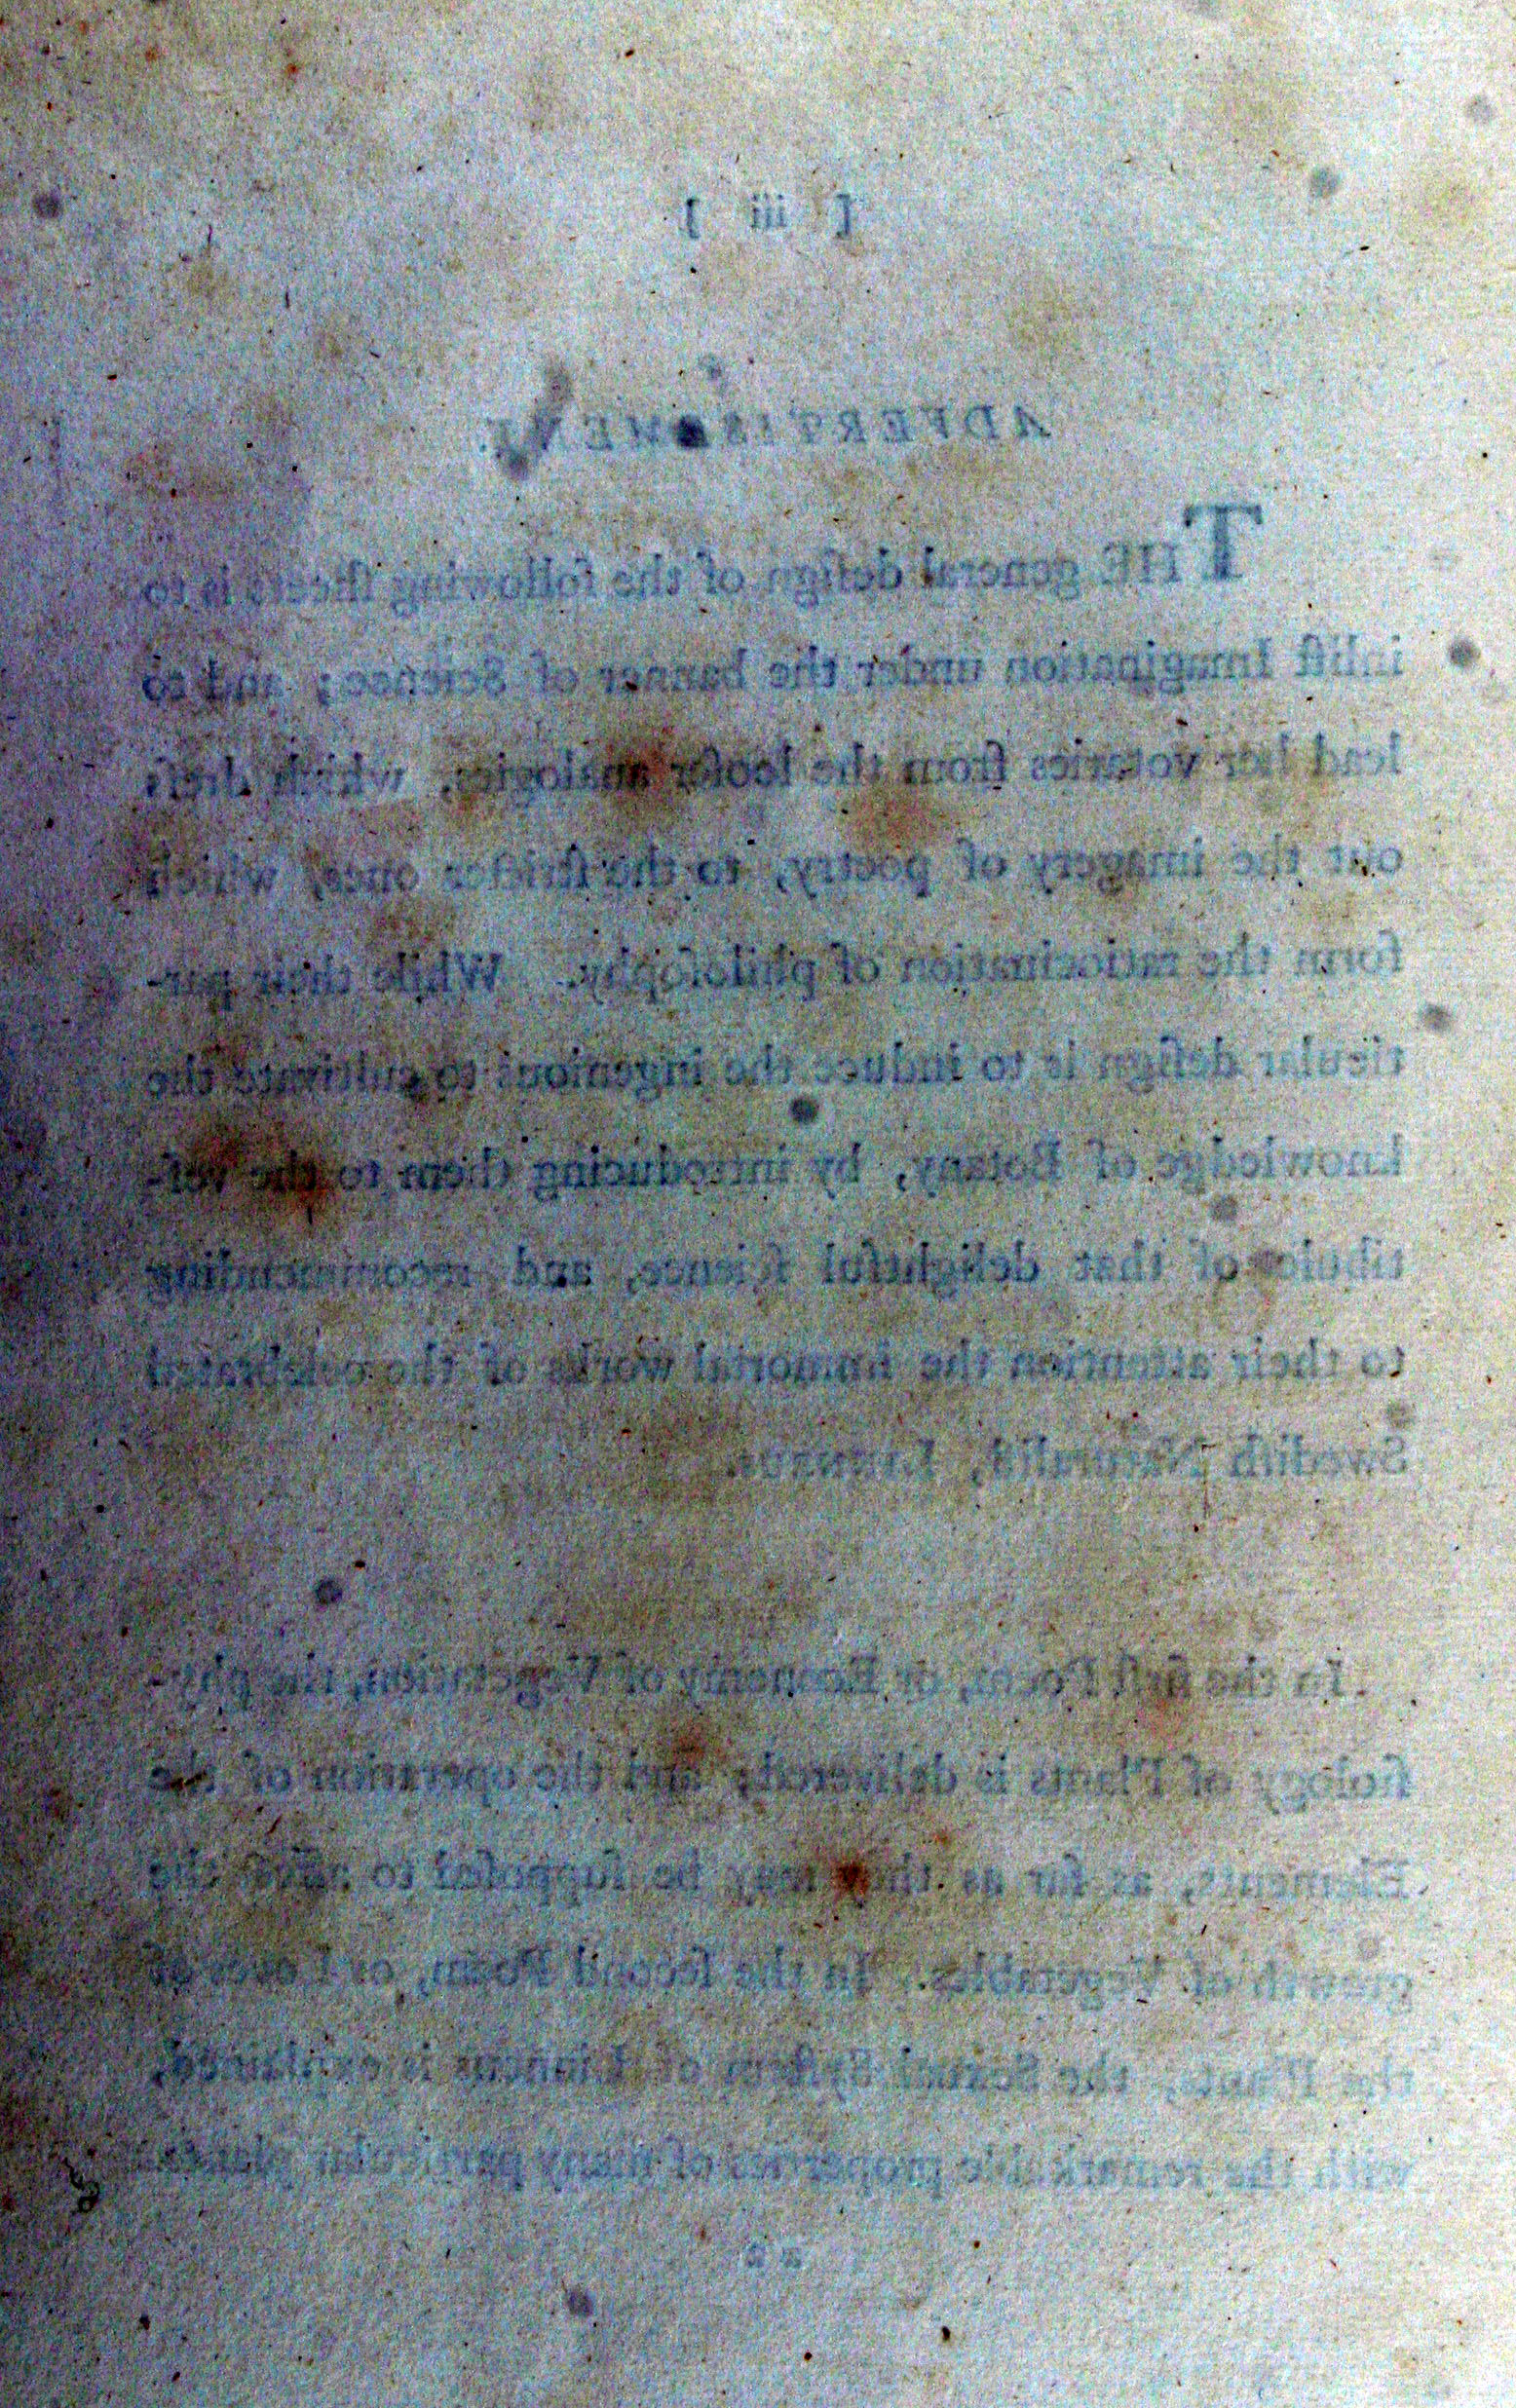 [ iii ]
ADVERTISEMENT.
THE general deſign of the following ſheets is to
inliſt Imagination under the banner of Science; and to
lead her votaries from the looſer analogies, which dreſs
out the imagery of poetry, to the ſtricter ones, which
form the ratiocination of philoſophy. While their par-
ticular deſign is to induce the ingenious to cultivate the
knowledge of Botany, by introducing them to the veſ-
tibule of that delightful ſcience, and recommending
to their attention the immortal works of the celebrated
Swediſh Naturaliſt, LINNEUS.
In the firſt Poem, or Economy of Vegetation, the phy-
ſiology of Plants is delivered; and the operation of the
Elements, as far as they may be ſuppoſed to affect the
growth of Vegetables. In the ſecond Poem, or Loves of
the Plants, the Sexual Syſtem of Linneus is explained,
with the remarkable properties of many particular plants.
a 2